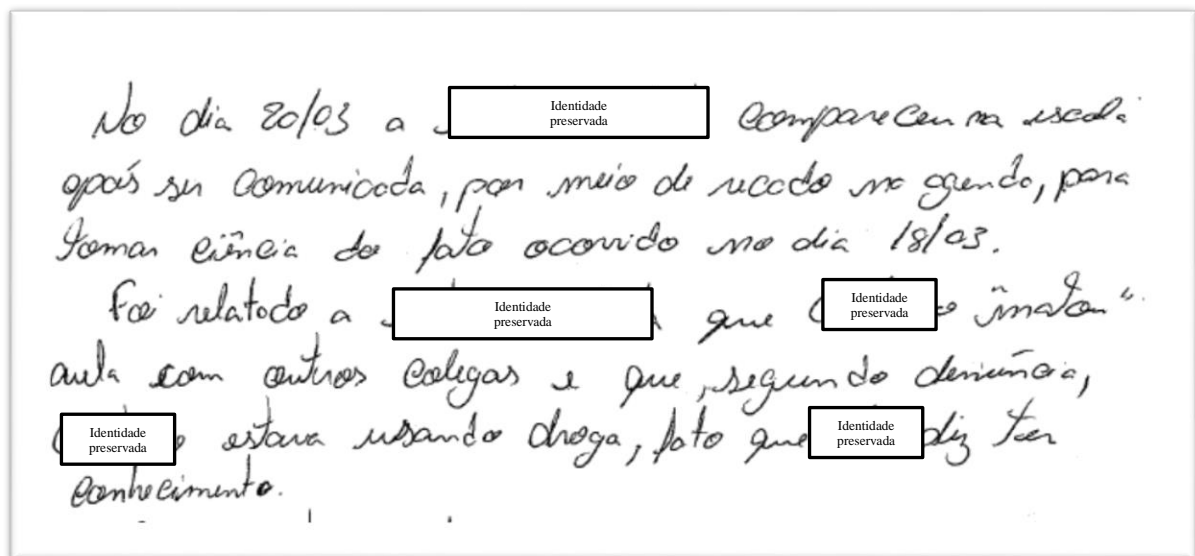 No dia 20/03 a Identidade preservada compareceu na escola
após ser comunicada, por meio de recado na agenda, para
tomar ciência do fato ocorrido no dia 18/03.
Foi relatado a Identidade preservada que Identidade preservada "matou"
aula com outros colegas e que, segundo denúncia,
Identidade preservada estava usando droga, fato que Identidade preservada diz ter
conhecimento.